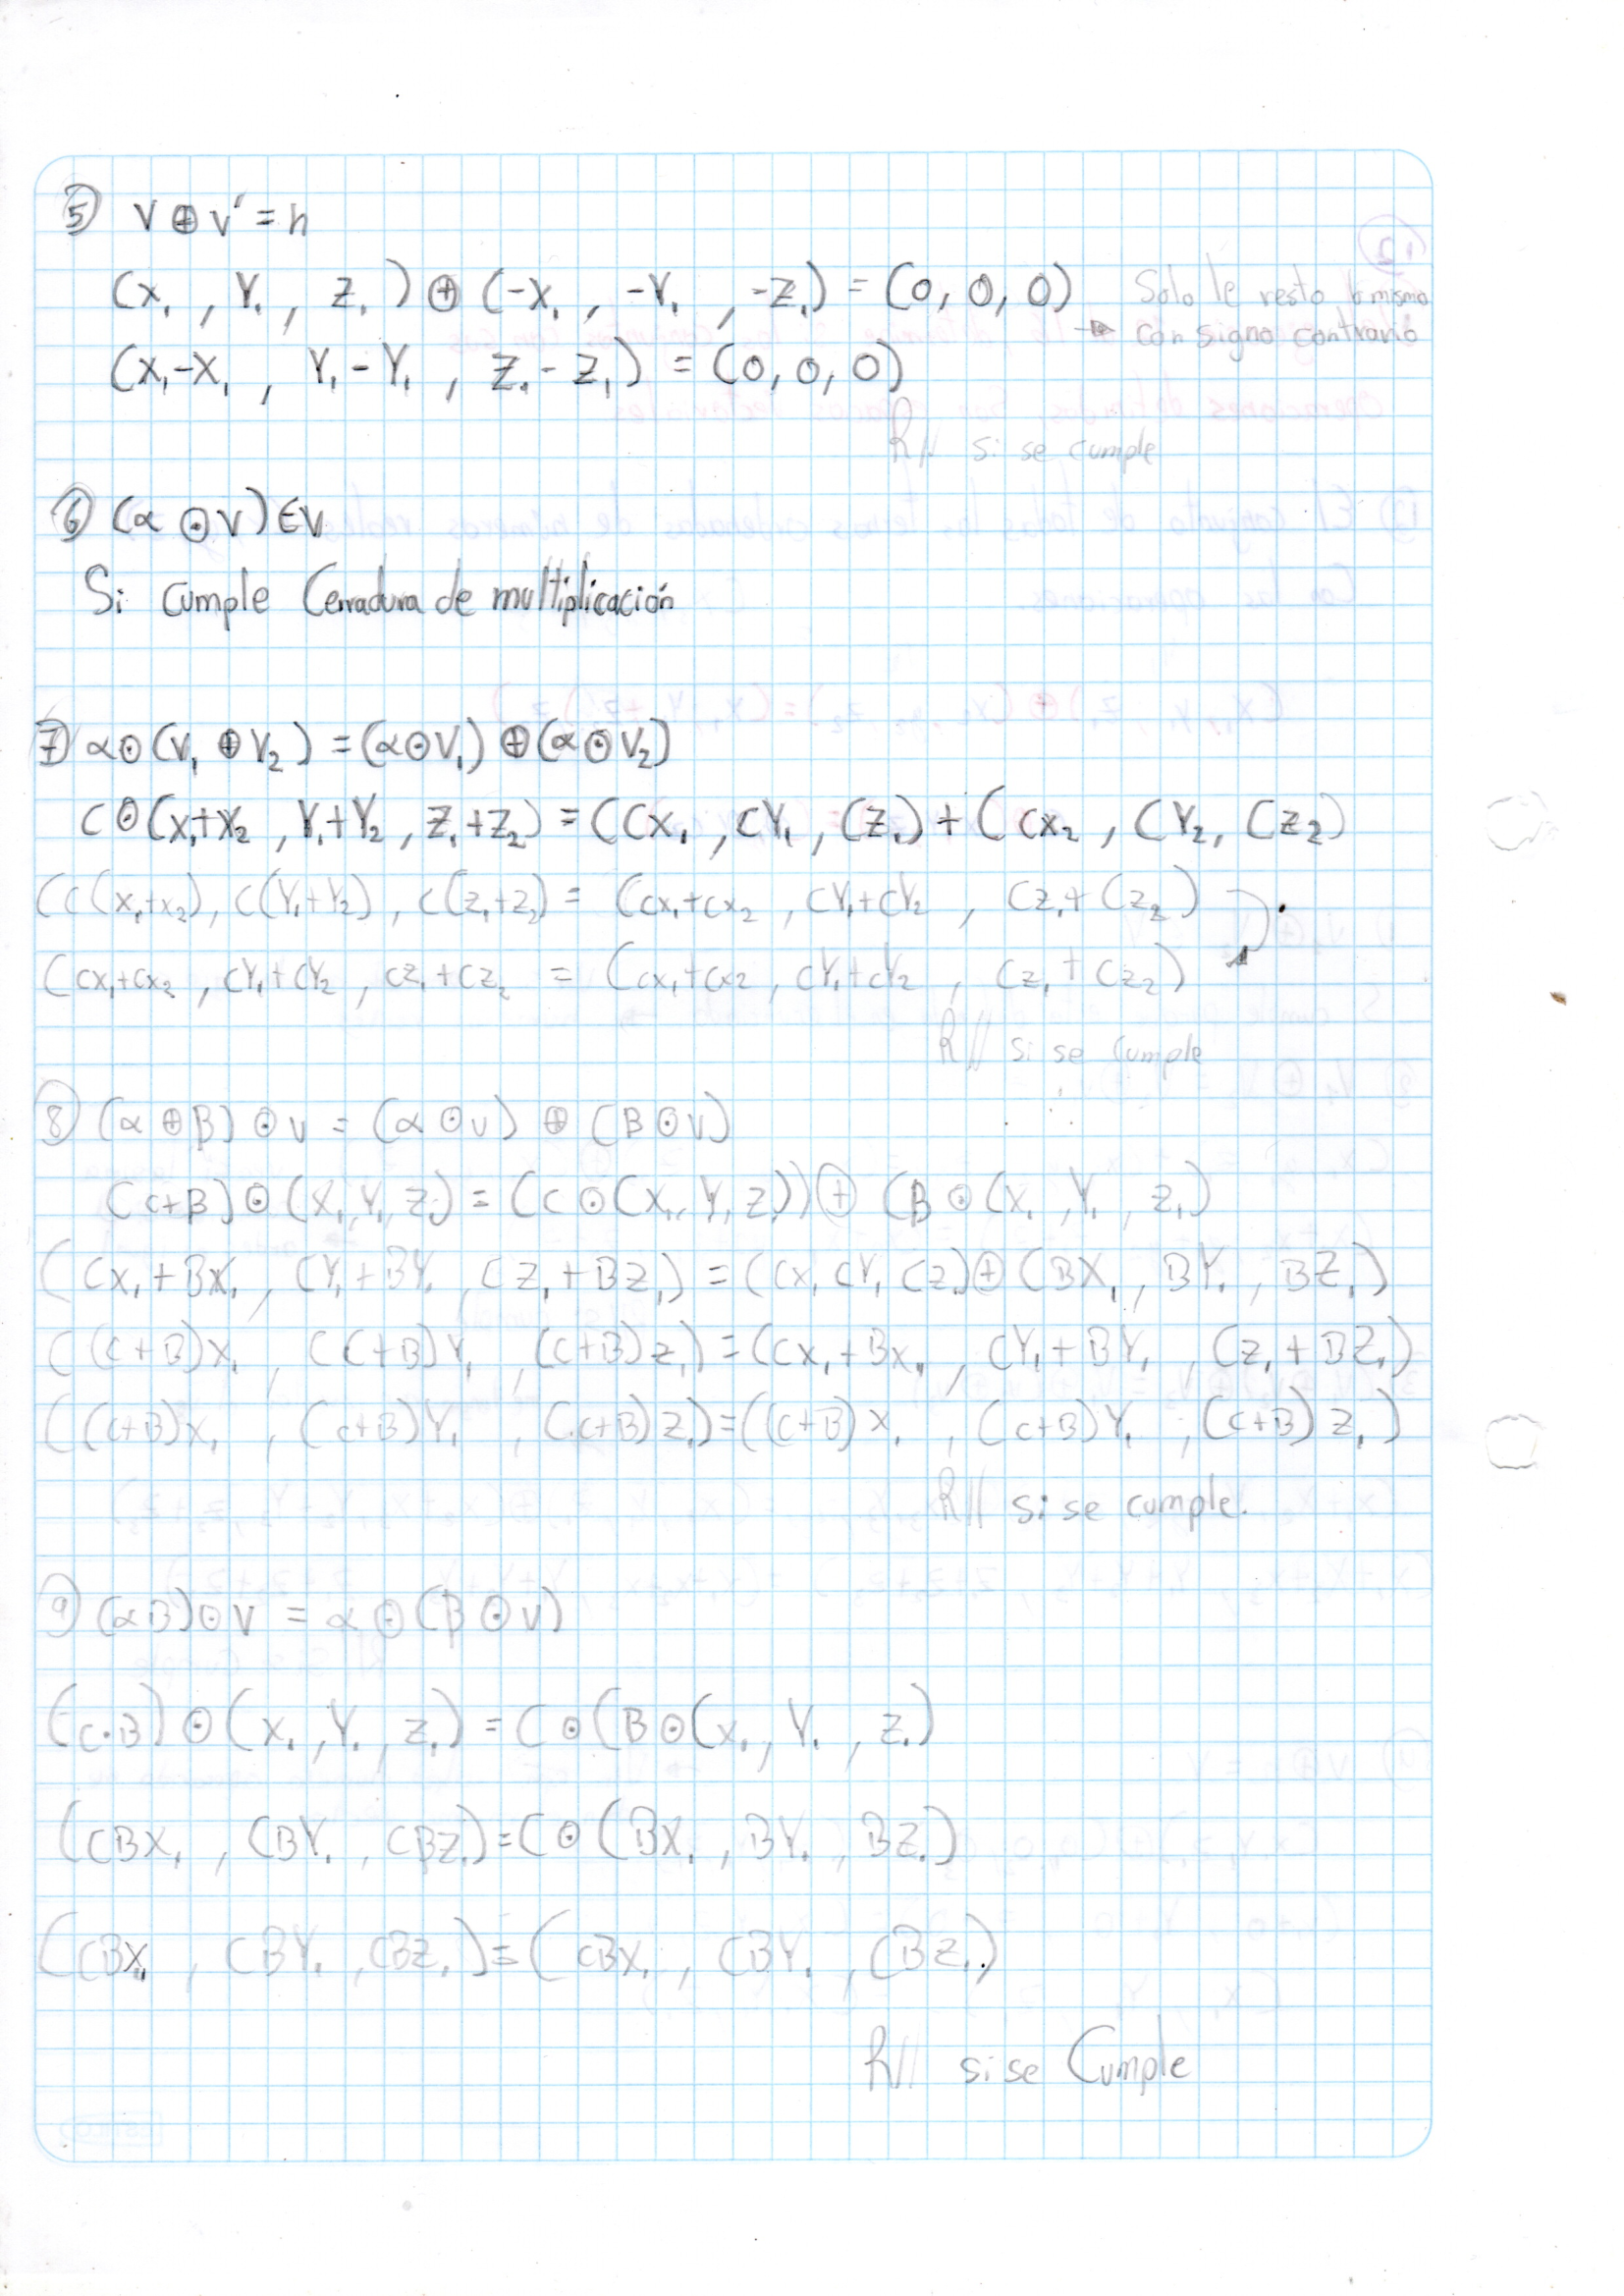 5) V ⊕ v' = n
(x₁, Y₁, z₁) ⊕ (-x₁, -Y₁, -z₁) = (0, 0, 0) Solo le resto lo mismo
→ con signo contrario
(x₁-x₁, Y₁-Y₁, z₁-z₁) = (0, 0, 0)
R// si se cumple
6) (α ⊙ V) ∈ V
Si cumple Cerradura de multiplicación
7) α ⊙ (V₁ ⊕ V₂) = (α ⊙ V₁) ⊕ (α ⊙ V₂)
C ⊙ (x₁+x₂, Y₁+Y₂, z₁+z₂) = (Cx₁, CY₁, Cz₁) + (Cx₂, CY₂, Cz₂)
(C(x₁+x₂), C(Y₁+Y₂), C(z₁+z₂) = (Cx₁+Cx₂, CY₁+CY₂, Cz₁+Cz₂)
(Cx₁+Cx₂, CY₁+CY₂, Cz₁+Cz₂ = (Cx₁+Cx₂, CY₁+CY₂, Cz₁+Cz₂)
R// si se cumple
8) (α ⊕ B) ⊙ V = (α ⊙ V) ⊕ (B ⊙ V)
(C+B) ⊙ (x₁, Y₁, z₁) = (C ⊙ (x₁, Y₁, z₁)) ⊕ (B ⊙ (x₁, Y₁, z₁)
(Cx₁+Bx₁, CY₁+BY₁, Cz₁+Bz₁) = (Cx₁ CY₁ Cz₁) ⊕ (Bx₁, BY₁, Bz₁)
((C+B)x₁, (C+B)Y₁, (C+B)z₁) = (Cx₁+Bx₁, CY₁+BY₁, Cz₁+Bz₁)
((C+B)x₁, (C+B)Y₁, (C+B)z₁) = ((C+B)x₁, (C+B)Y₁, (C+B)z₁)
R// si se cumple.
9) (αB) ⊙ V = α ⊙ (B ⊙ V)
(C·B) ⊙ (x₁, Y₁, z₁) = C ⊙ (B ⊙ (x₁, Y₁, z₁)
(CBx₁, CBY₁, CBz₁) = C ⊙ (Bx₁, BY₁, Bz₁)
(CBx₁, CBY₁, CBz₁) = (CBx₁, CBY₁, CBz₁)
R// si se Cumple